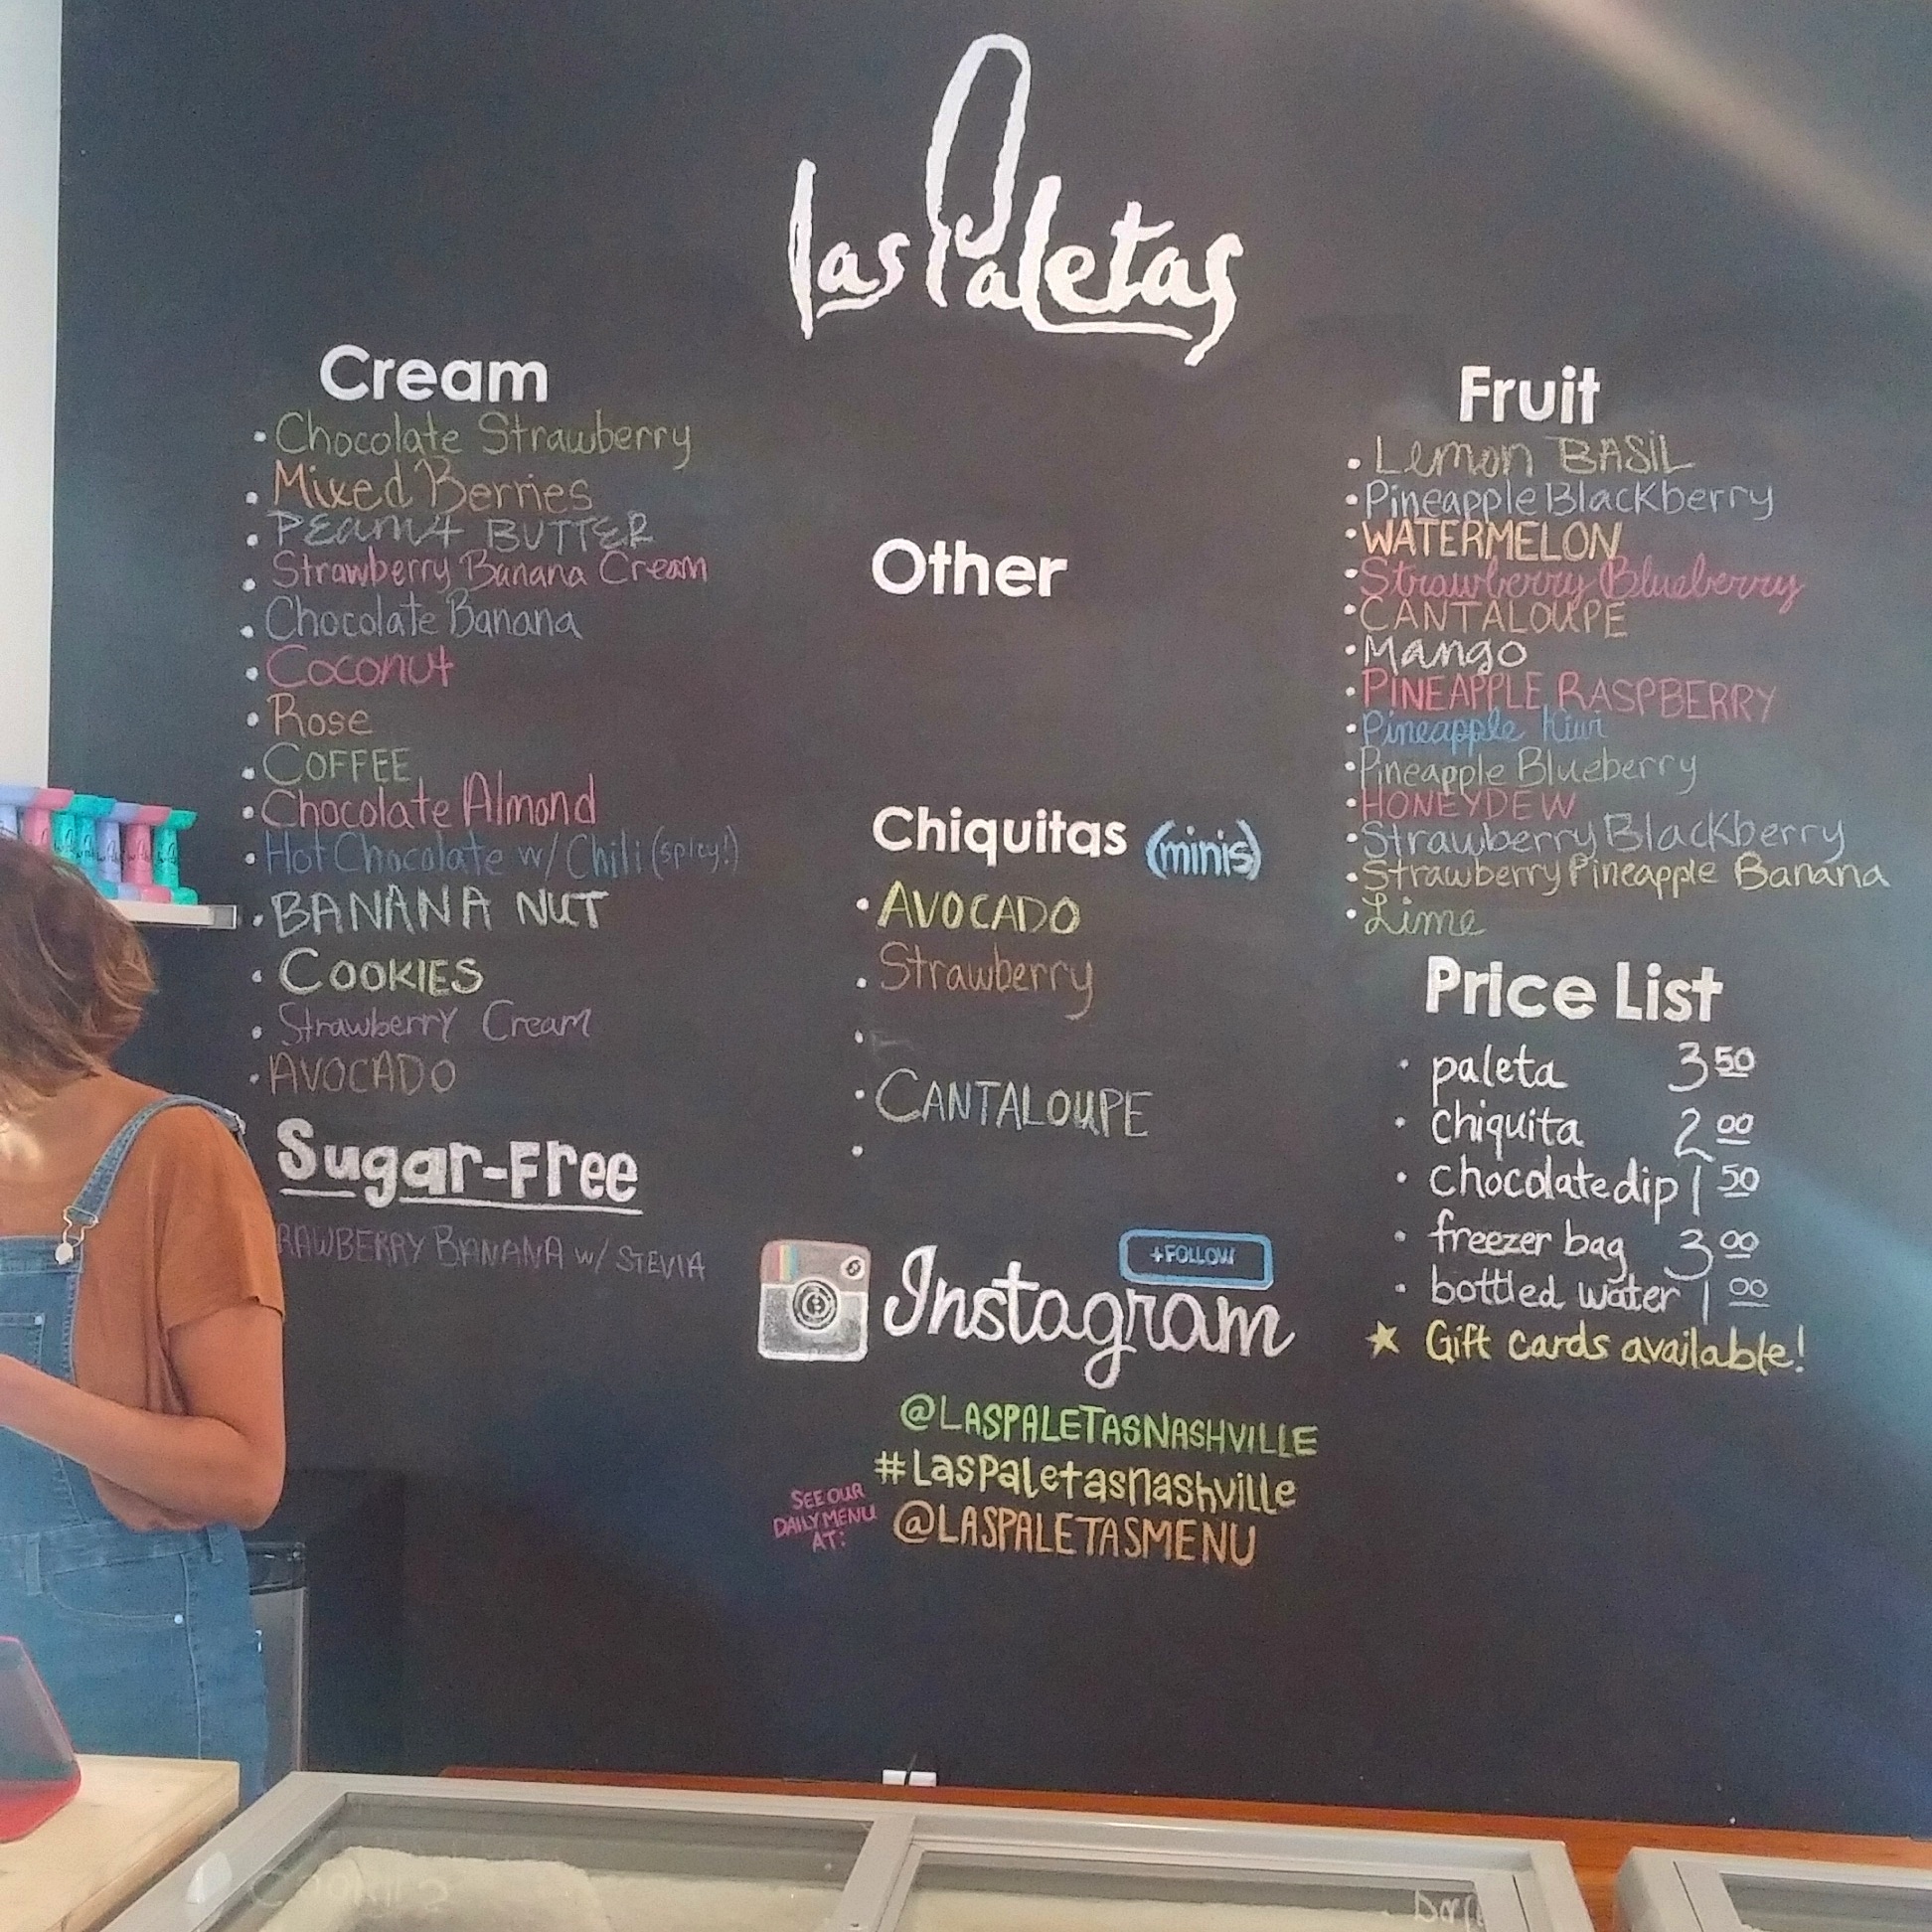 Las Paletas
Cream
Chocolate Strawberry
Mixed Berries
PEANUT BUTTER
Strawberry Banana Cream
Chocolate Banana
Coconut
Rose
COFFEE
Chocolate Almond
Hot Chocolate w/ Chili (spicy!)
BANANA NUT
COOKIES
Strawberry Cream
AVOCADO
Sugar-Free
RAWBERRY BANANA w/ STEVIA
Other
Chiquitas (minis)
AVOCADO
Strawberry
CANTALOUPE
+FOLLOW
Instagram
@LASPALETASNASHVILLE
#Laspaletasnashville
SEE OUR
DAILY MENU
AT:
@LASPALETASMENU
Fruit
Lemon BASIL
Pineapple Blackberry
WATERMELON
Strawberry Blueberry
CANTALOUPE
Mango
PINEAPPLE RASPBERRY
Pineapple Kiwi
Pineapple Blueberry
HONEYDEW
Strawberry Blackberry
Strawberry Pineapple Banana
Lime
Price List
paleta 3 50
chiquita 2 00
chocolate dip 1 50
freezer bag 3 00
bottled water 1 00
Gift cards available!